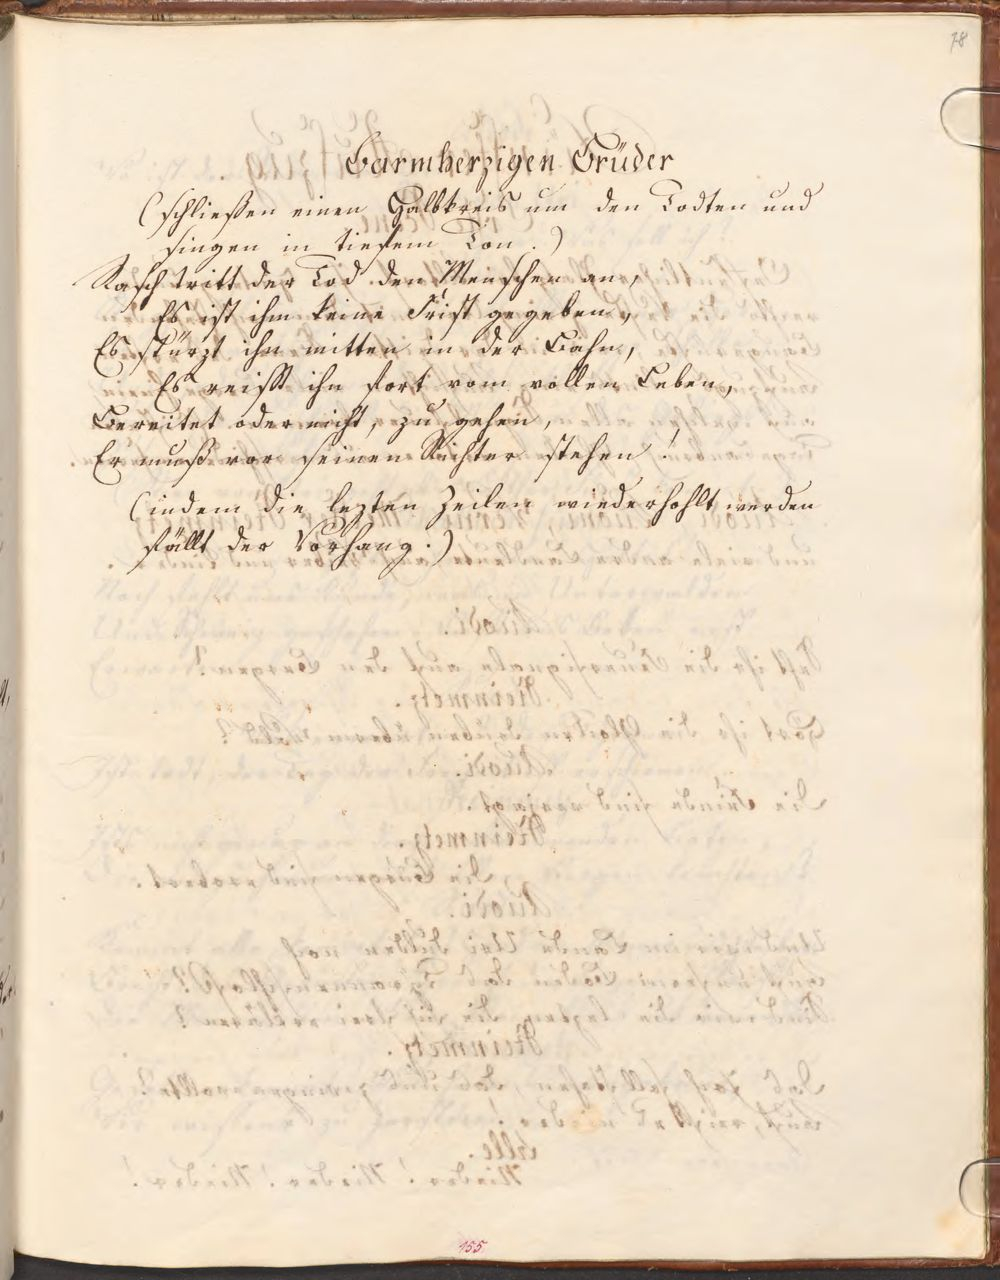 78
Barmherzigen Brüder
(schließen einen Halbkreis um den Todten und
singen in tiefem Ton.)
Rasch tritt der Tod den Menschen an,
Es ist ihm keine Frist gegeben,
Es stürzt ihn mitten in der Bahn,
Es reißt ihn fort vom vollen Leben,
Bereitet oder nicht, zu gehen,
Er muß vor seinen Richter stehen!
(indem die lezten Zeilen wiederhohlt werden
fällt der Vorhang.)
155